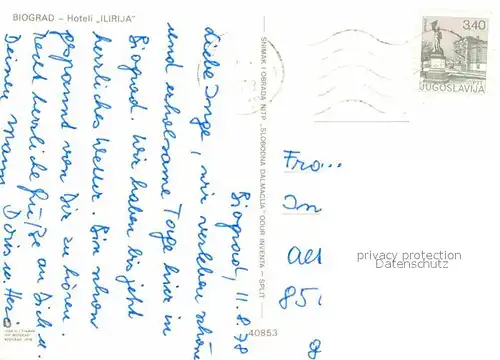 BIOGRAD – Hoteli „ILIRIJA"
Biograd, 11.8.78
Liebe Inge, wir verleben schöne
und erholsame Tage hier in
Biograd. Wir haben bis jetzt
herrliches Wetter. Bin schon
gespannt von Dir zu hören.
Recht herrliche Grüße an Dich u.
Deinen Mann Doris u.
SNIMAK I OBRADA NITP „SLOBODNA DALMACIJA" OOUR INVENTA – SPLIT
3,40
JUGOSLAVIJA
Fra...
In
851
40853
privacy protection
Datenschutz